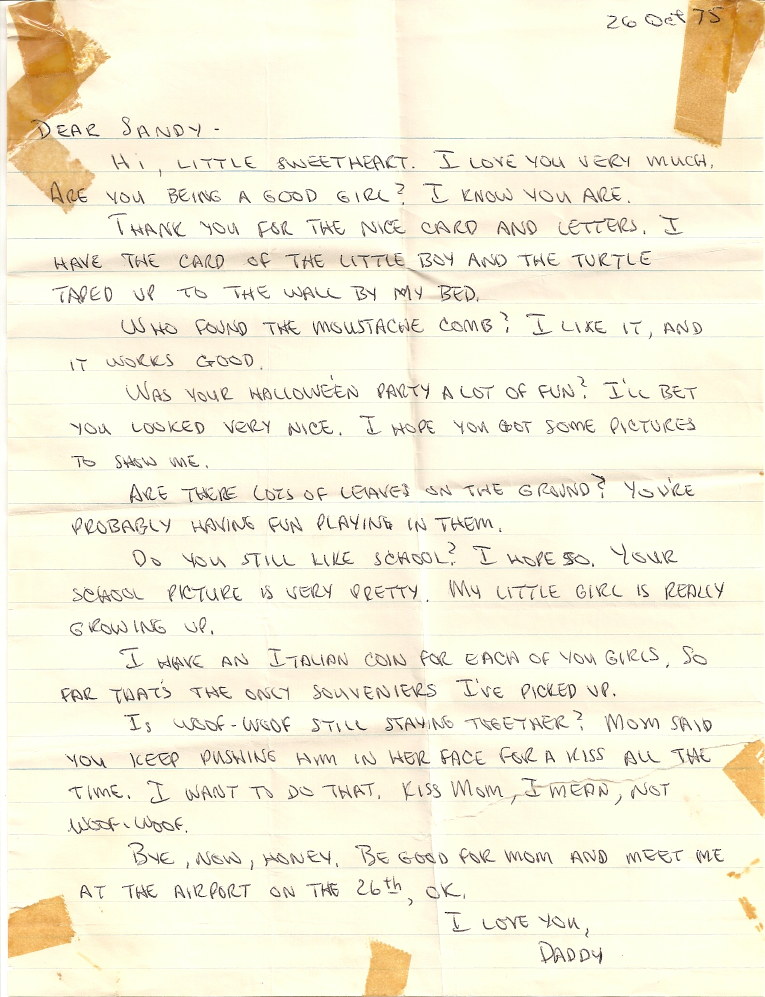 26 Oct 75
DEAR SANDY -
HI, LITTLE SWEETHEART. I LOVE YOU VERY MUCH.
ARE YOU BEING A GOOD GIRL? I KNOW YOU ARE.
THANK YOU FOR THE NICE CARD AND LETTERS. I
HAVE THE CARD OF THE LITTLE BOY AND THE TURTLE
TAPED UP TO THE WALL BY MY BED.
WHO FOUND THE MOUSTACHE COMB? I LIKE IT, AND
IT WORKS GOOD.
WAS YOUR HALLOWE'EN PARTY A LOT OF FUN? I'LL BET
YOU LOOKED VERY NICE. I HOPE YOU GOT SOME PICTURES
TO SHOW ME.
ARE THERE LOTS OF LEAVES ON THE GROUND? YOU'RE
PROBABLY HAVING FUN PLAYING IN THEM.
DO YOU STILL LIKE SCHOOL? I HOPE SO. YOUR
SCHOOL PICTURE IS VERY PRETTY. MY LITTLE GIRL IS REALLY
GROWING UP.
I HAVE AN ITALIAN COIN FOR EACH OF YOU GIRLS, SO
FAR THAT'S THE ONLY SOUVENIERS I'VE PICKED UP.
IS WOOF-WOOF STILL STAYING TOGETHER? MOM SAID
YOU KEEP PUSHING HIM IN HER FACE FOR A KISS ALL THE
TIME. I WANT TO DO THAT. KISS MOM, I MEAN, NOT
WOOF-WOOF.
BYE, NOW, HONEY. BE GOOD FOR MOM AND MEET ME
AT THE AIRPORT ON THE 26th, OK.
I LOVE YOU,
DADDY